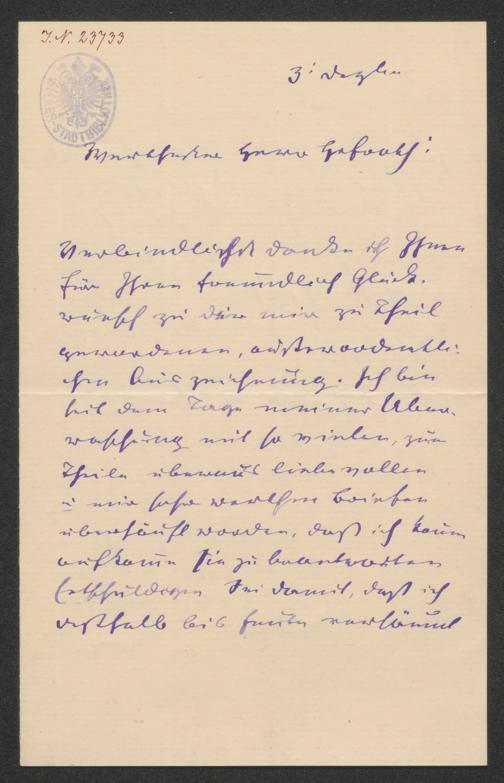 I. N. 23733
WIENER STADTBIBLIOTHEK
3t Dezbr
Werthester Herr Hofrath!
Verbindlichst danke ich Ihnen
für Ihren freundlich Glück-
wunsch zu der mir zu Theil
gewordenen, außerordentli-
chen Auszeichnung. Ich bin
seit dem Tage meiner Über-
raschung mit so vielen, zum
Theile überaus liebevollen
u mir sehr werthen Briefen
überhäuft worden, daß ich kaum
aufkomme sie zu beantworten
Entschuldigen Sie damit, daß ich
deßhalb bis heute versäumt